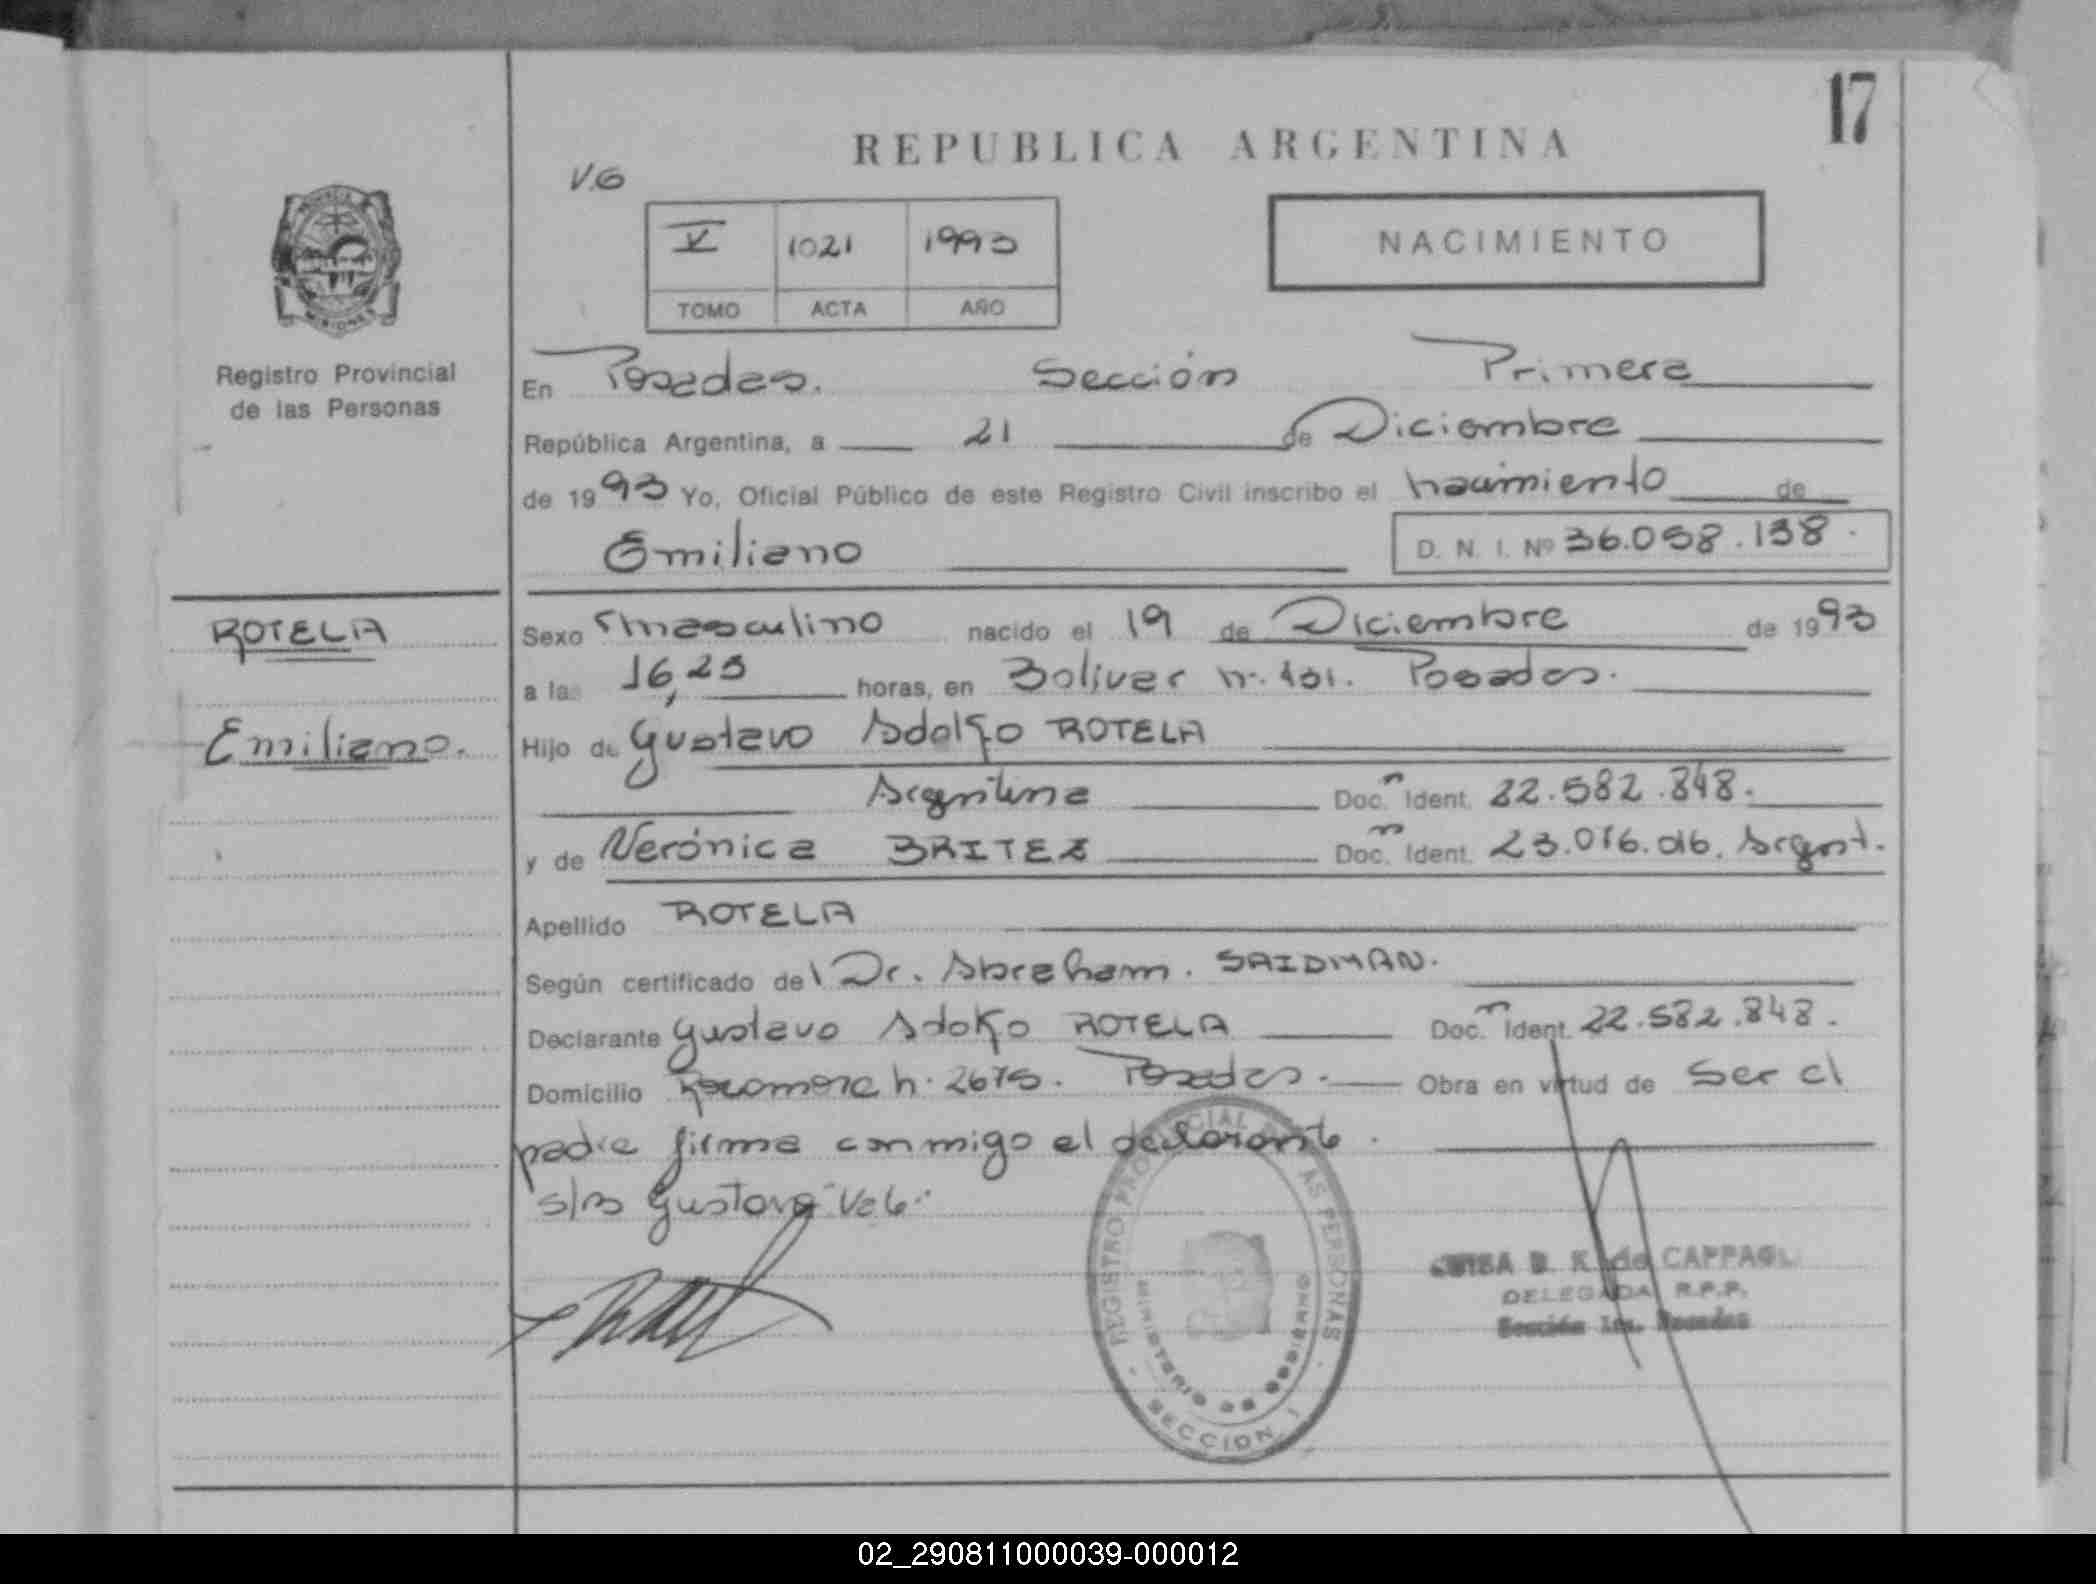 17
REPUBLICA ARGENTINA
V.G
V 1021 1993
TOMO ACTA AÑO
NACIMIENTO
PROVINCIA
MISIONES
Registro Provincial
de las Personas
En Posadas. Sección Primera
República Argentina, a 21 de Diciembre
de 1993 Yo, Oficial Público de este Registro Civil inscribo el nacimiento de
Emiliano D. N. I. Nº 36.058.138.
ROTELA
Emiliano.
Sexo masculino nacido el 19 de Diciembre de 1993
a las 16,25 horas, en Bolivar n. 101. Posadas.
Hijo de Gustavo Adolfo ROTELA
Argentina Doc. Ident. 22.582.848.
y de Verónica BRITEZ Doc. Ident. 23.016.016. Argent.
Apellido ROTELA
Según certificado del Dr. Abraham. SAIDMAN.
Declarante Gustavo Adolfo ROTELA Doc. Ident. 22.582.848.
Domicilio Rocamora n. 2675. Posadas. Obra en virtud de Ser el
padre firma conmigo el declarante.
s/r Gustavo Vale.
REGISTRO PROVINCIAL DE LAS PERSONAS
MINISTERIO DE GOBIERNO
SECCION 1
D. K. de CAPPAGLI
DELEGADA R.P.P.
Sección 1ra. Posadas
02_290811000039-000012